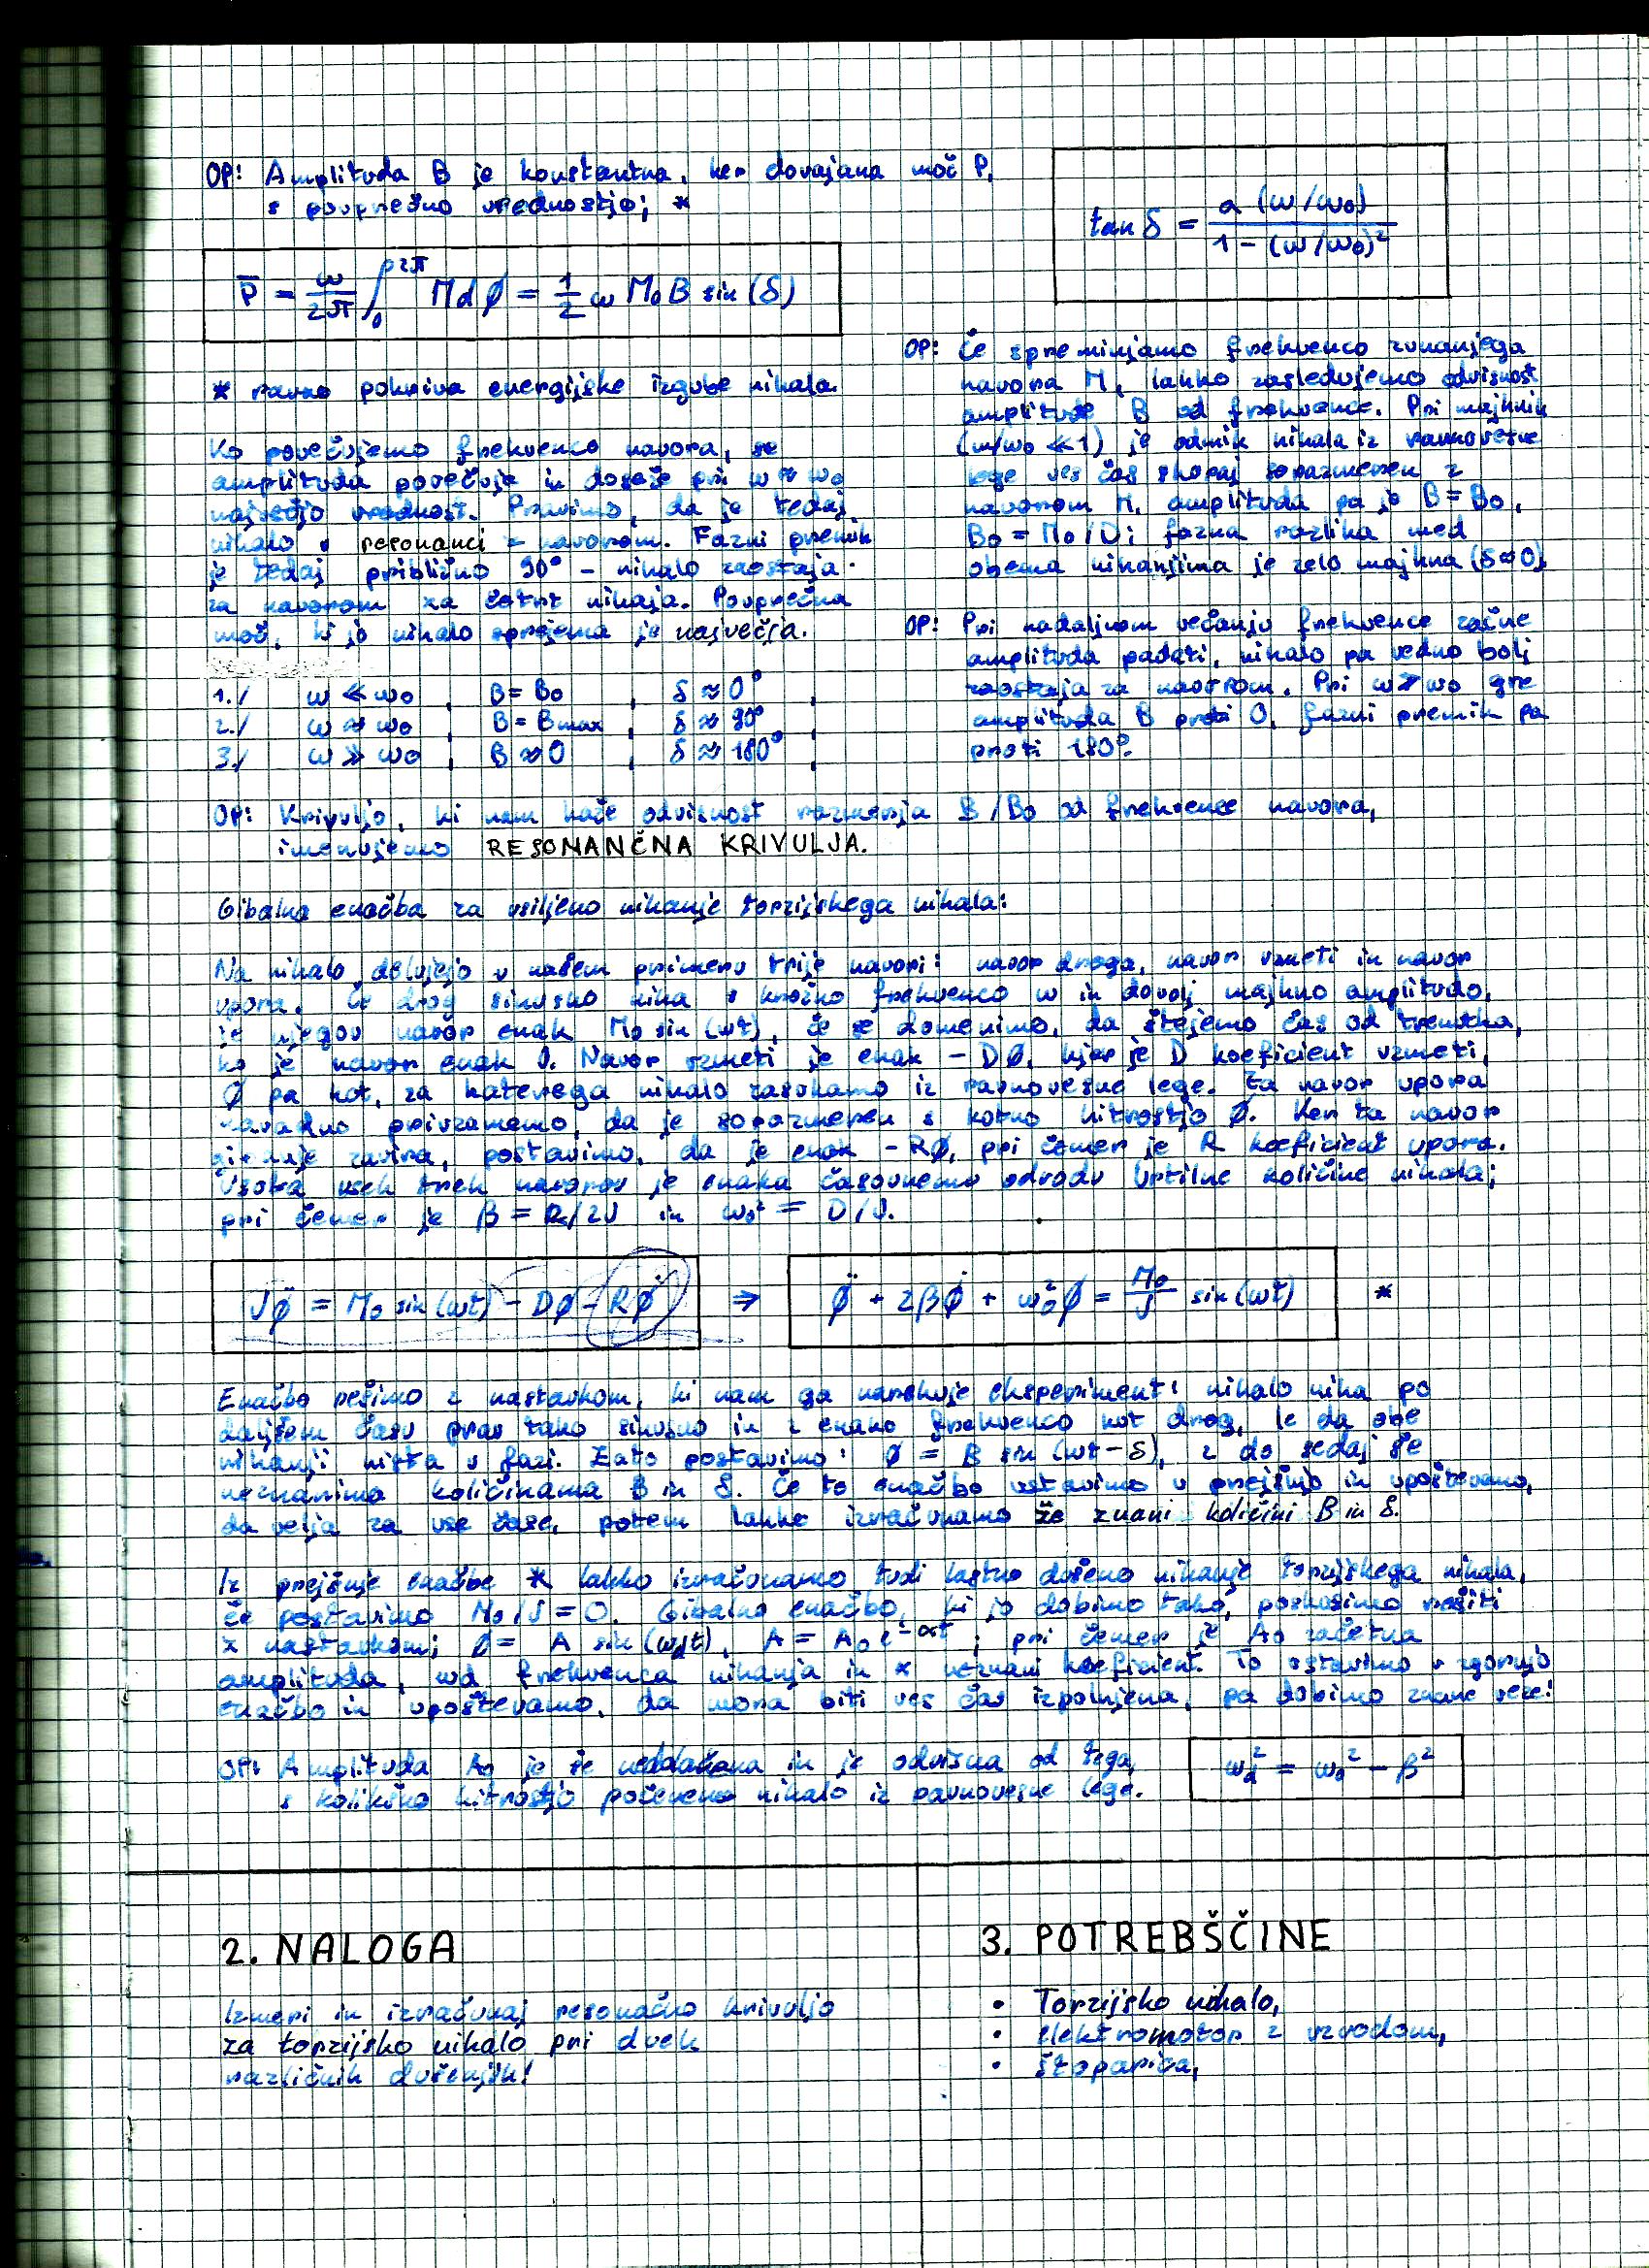 OP: Amplituda B je konstantna, ker dovajana moč P,
s povprečno vrednostjo; *
P̅ = ω/2π ∫₀^2π M dØ = 1/2 ω M₀ B sin(δ)
* ravno pokriva energijske izgube nihala.
Ko povečujemo frekvenco navora, se
amplituda povečuje in doseže pri ω ≈ ω₀
največjo vrednost. Pravimo, da je tedaj
nihalo v resonanci z navorom. Fazni premik
je tedaj približno 90° - nihalo zaostaja
za navorom za četrt nihaja. Povprečna
moč, ki jo nihalo sprejema je največja.
1./ ω ≪ ω₀ , B = B₀ , δ ≈ 0° ,
2./ ω ≈ ω₀ , B = Bmax , δ ≈ 90° ,
3./ ω ≫ ω₀ , B ≈ 0 , δ ≈ 180° ,
tan δ = a (ω/ω₀) / 1 - (ω/ω₀)²
OP: Če spreminjamo frekvenco zunanjega
navora M, lahko zasledujemo odvisnost
amplitude B od frekvence. Pri majhnih
(ω/ω₀ ≪ 1) je odmik nihala iz ravnovesne
lege ves čas skoraj sorazmeren z
navorom M, amplituda pa je B = B₀,
B₀ = M₀/D; fazna razlika med
obema nihanjima je zelo majhna (δ ≈ 0).
OP: Pri nadaljnem večanju frekvence začne
amplituda padati, nihalo pa vedno bolj
zaostaja za navorom. Pri ω ≫ ω₀ gre
amplituda B proti 0, fazni premik pa
proti 180°.
OP: Krivuljo, ki nam kaže odvisnost razmerja B/B₀ od frekvence navora,
imenujemo RESONANČNA KRIVULJA.
Gibalna enačba za vsiljeno nihanje torzijskega nihala:
Na nihalo delujejo v našem primeru trije navori: navor droga, navor vzmeti in navor
upora. Če drog sinusno niha s krožno frekvenco ω in dovolj majhno amplitudo,
je njegov navor enak M₀ sin (ωt), če se domenimo, da štejemo čas od trenutka,
ko je navor enak 0. Navor vzmeti je enak - DØ, kjer je D koeficient vzmeti,
Ø pa kot, za katerega nihalo zasukamo iz ravnovesne lege. Za navor upora
navadno privzamemo, da je sorazmeren s kotno hitrostjo Ø̇. Ker ta navor
gibanje zavira, postavimo, da je enak - RØ̇, pri čemer je R koeficient upora.
Vsota vseh treh navorov je enaka časovnemu odvodu vrtilne količine nihala;
pri čemer je β = R/2J in ω₀² = D/J.
JØ̈ = M₀ sin (ωt) - DØ - RØ̇ ⇒ Ø̈ + 2βØ̇ + ω₀²Ø = M₀/J sin (ωt) *
Enačbo rešimo z nastavkom, ki nam ga narekuje eksperiment: nihalo niha po
daljšem času prav tako sinusno in z enako frekvenco kot drog, le da obe
nihanji nista v fazi. Zato postavimo: Ø = B sin (ωt - δ), z do sedaj še
neznanima količinama B in δ. Če to enačbo vstavimo v prejšnjo in upoštevamo,
da velja za vse čase, potem lahko izračunamo že znani količini B in δ.
Iz prejšnje enačbe * lahko izračunamo tudi lastno dušeno nihanje torzijskega nihala,
če postavimo M₀/J = 0. Gibalno enačbo, ki jo dobimo tako, poskusimo rešiti
z nastavkom; Ø = A sin (ωdt), A = A₀ e^-αt ; pri čemer je A₀ začetna
amplituda, ωd frekvenca nihanja in α neznani koeficient. To vstavimo v zgornjo
enačbo in upoštevamo, da mora biti ves čas izpolnjena, pa dobimo znane veze!
OP: Amplituda A₀ je še nedoločena in je odvisna od tega,
s kolikšno hitrostjo poženemo nihalo iz ravnovesne lege.
ωd² = ω₀² - β²
2. NALOGA
Izmeri in izračunaj resonačno krivuljo
za torzijsko nihalo pri dveh
različnih dušenjih!
3. POTREBŠČINE
• Torzijsko nihalo,
• elektromotor z vzvodom,
• štoparica,